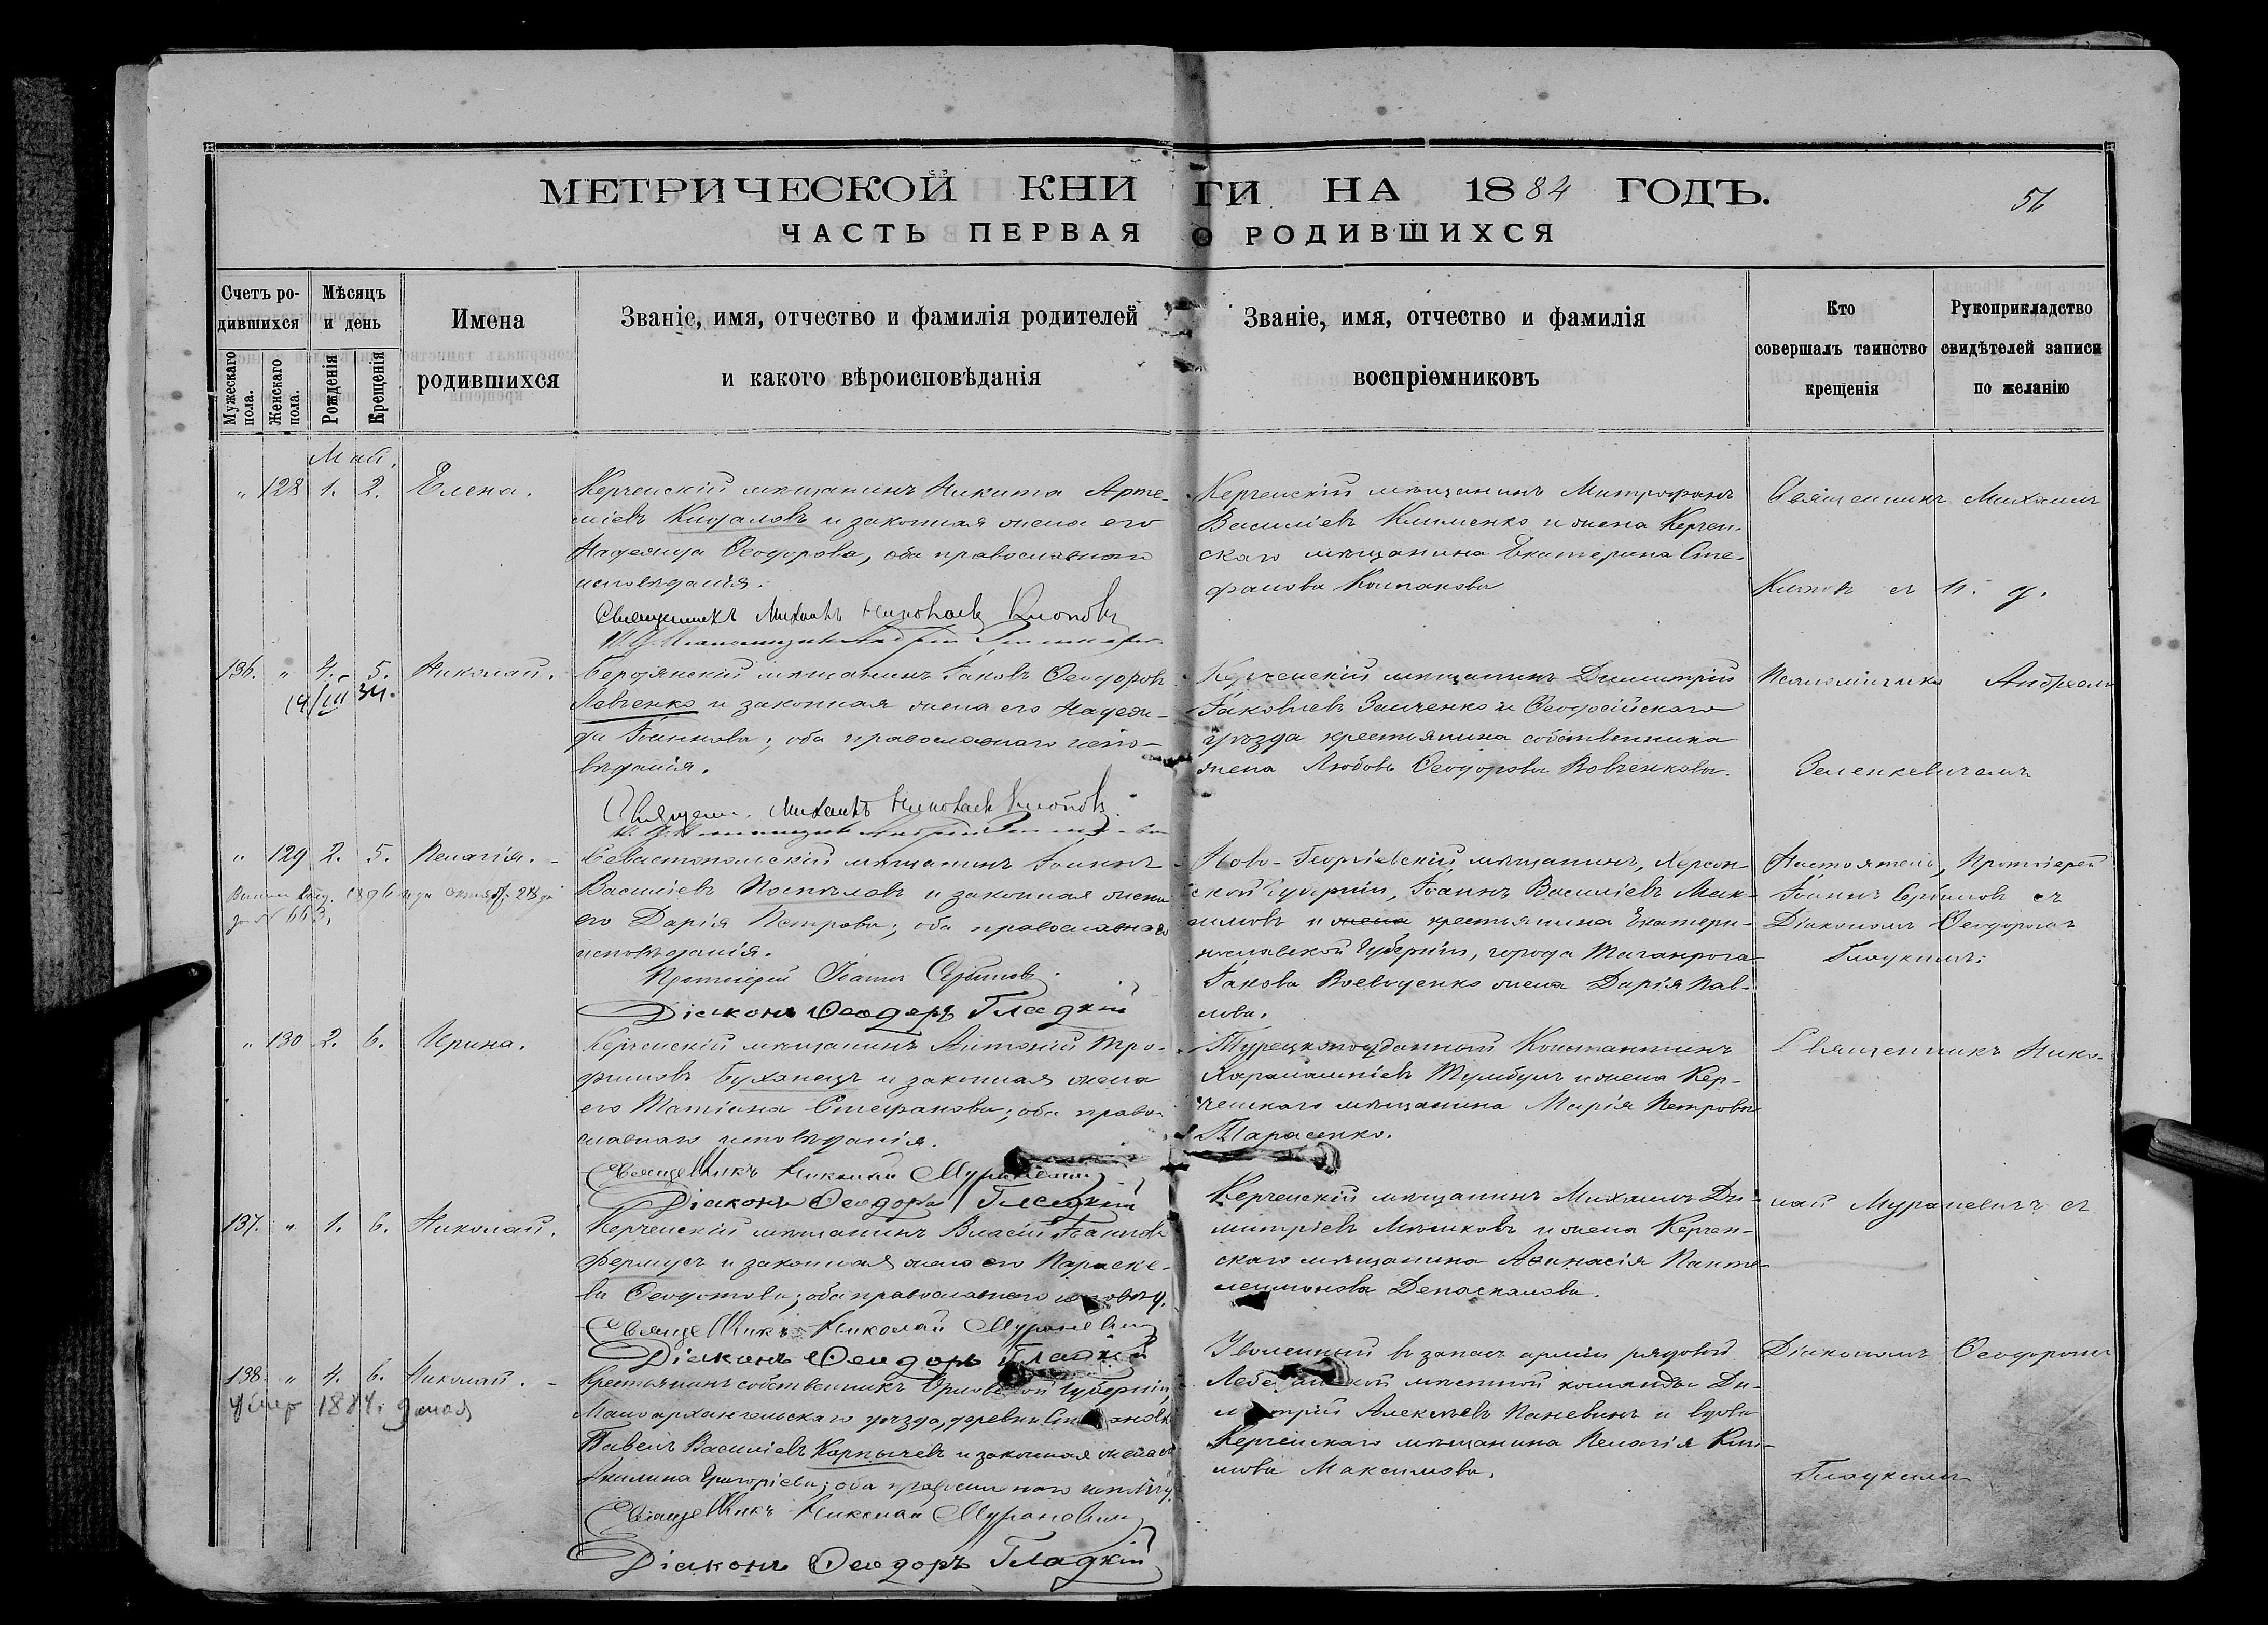 МЕТРИЧЕСКОЙ КНИГИ НА 1884 ГОДЪ.
56
ЧАСТЬ ПЕРВАЯ О РОДИВШИХСЯ
Счетъ родившихся
Мужескаго пола.
Женскаго пола.
Мѣсяцъ и день
Рожденія
Крещенія
Имена
родившихся
Званіе, имя, отчество и фамилія родителей
и какого вѣроисповѣданія
Званіе, имя, отчество и фамилія
воспріемниковъ
Кто
совершалъ таинство
крещенія
Рукоприкладство
свидѣтелей записи
по желанію
Май.
" 128 1. 2. Елена.
Керченскій мѣщанинъ Никита Арте-
міевъ и законная жена его
Надежда Ѳеодорова, оба православнаго
исповѣданія.
Священникъ Михаилъ Николаевъ Клоповъ
Керченскій мѣщанинъ Митрофанъ
Василіевъ Клименко и жена Керчен-
скаго мѣщанина Екатерина Сте-
фанова
Священникъ Михаилъ
Клоповъ съ и. д.
136. " 4. 5. Николай.
14/III 34.
Бердянскій мѣщанинъ Іаковъ Ѳеодоровъ
Левченко и законная жена его Надеж-
да Іоаннова; оба православнаго испо-
вѣданія.
Священ. Михаилъ Николаевъ Клоповъ
Керченскій мѣщанинъ Димитрій
Іаковлевъ Заиченко и Ѳеодосійскаго
уѣзда крестьянина собственника
жена Любовь Ѳеодорова Вовченкова.
Псаломщикомъ Андреемъ
Зеленкевичемъ
" 129 2. 5. Пелагія.
1896 года Октября 28 дня
за № 663,
Севастопольскій мѣщанинъ Іоаннъ
Василіевъ Поспѣловъ и законная жена
его Дарія Петрова; оба православнаго
исповѣданія.
Протоіерей Іоаннъ Сербиновъ.
Діаконъ Ѳеодоръ Гладкій
Ново-Георгіевскій мѣщанинъ, Херсон-
ской Губерніи, Іоаннъ Василіевъ Мак-
симовъ и жена крестьянина Екатери-
нославской Губерніи, города Таганрога
Іакова Воеводенко жена Дарія Пав-
лова.
Настоятель, Протоіерей
Іоаннъ Сербиновъ съ
Діакономъ Ѳеодоромъ
Гладкимъ.
" 130 2. 6. Ирина.
Керченскій мѣщанинъ Антоній Тро-
фимовъ Буханецъ и законная жена
его Татіана Стефанова; оба право-
славнаго исповѣданія.
Священникъ Николай Мураневичъ
Діаконъ Ѳеодоръ Гладкій
Турецкоподданный Константинъ
Харалампіевъ Тумбулъ и жена Кер-
ченскаго мѣщанина Марія Петрова
Тарасенко.
Священникъ Нико-
лай Мураневичъ съ
137. " 1. 6. Николай.
Керченскій мѣщанинъ Власій Іоанновъ
Фермусъ и законная жена его Параске-
ва Ѳеодотова; оба православнаго исповѣд.
Священникъ Николай Мураневичъ
Діаконъ Ѳеодоръ Гладкій
Керченскій мѣщанинъ Михаилъ Ди-
митріевъ Мѣшковъ и жена Керчен-
скаго мѣщанина Аѳанасія Панте-
леимонова
138. " 4. 6. Николай.
Умер 1884 г. 9 мая
Крестьянинъ собственникъ Орловской Губерніи,
Малоархангельскаго уѣзда, деревни
Павелъ Василіевъ Карпычевъ и законная жена его
Акилина Григоріева; оба православнаго исповѣд.
Священникъ Николай Мураневичъ
Діаконъ Ѳеодоръ Гладкій
Уволенный въ запасъ арміи рядовой
мѣстной команды Ди-
митрій Алексѣевъ Паневинъ и вдова
Керченскаго мѣщанина Пелагія
Максимова.
Діакономъ Ѳеодоромъ
Гладкимъ